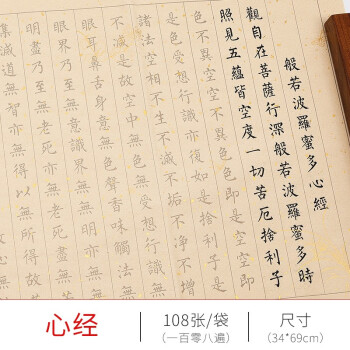 般若波羅蜜多心經
觀自在菩薩行深般若波羅蜜多時
照見五蘊皆空度一切苦厄捨利子
色不異空空不異色色即是空空即
是色受想行識亦復如是捨利子是
諸法空相不生不滅不垢不淨不增
不減是故空中無色無受想行識無
眼耳鼻舌身意無色聲香味觸法無
眼界乃至無意識界無無明亦無無
明盡乃至無老死亦無老死盡無
滅道無智亦無得以無所得故
心经
108张/袋
(一百零八遍)
尺寸
(34*69cm)